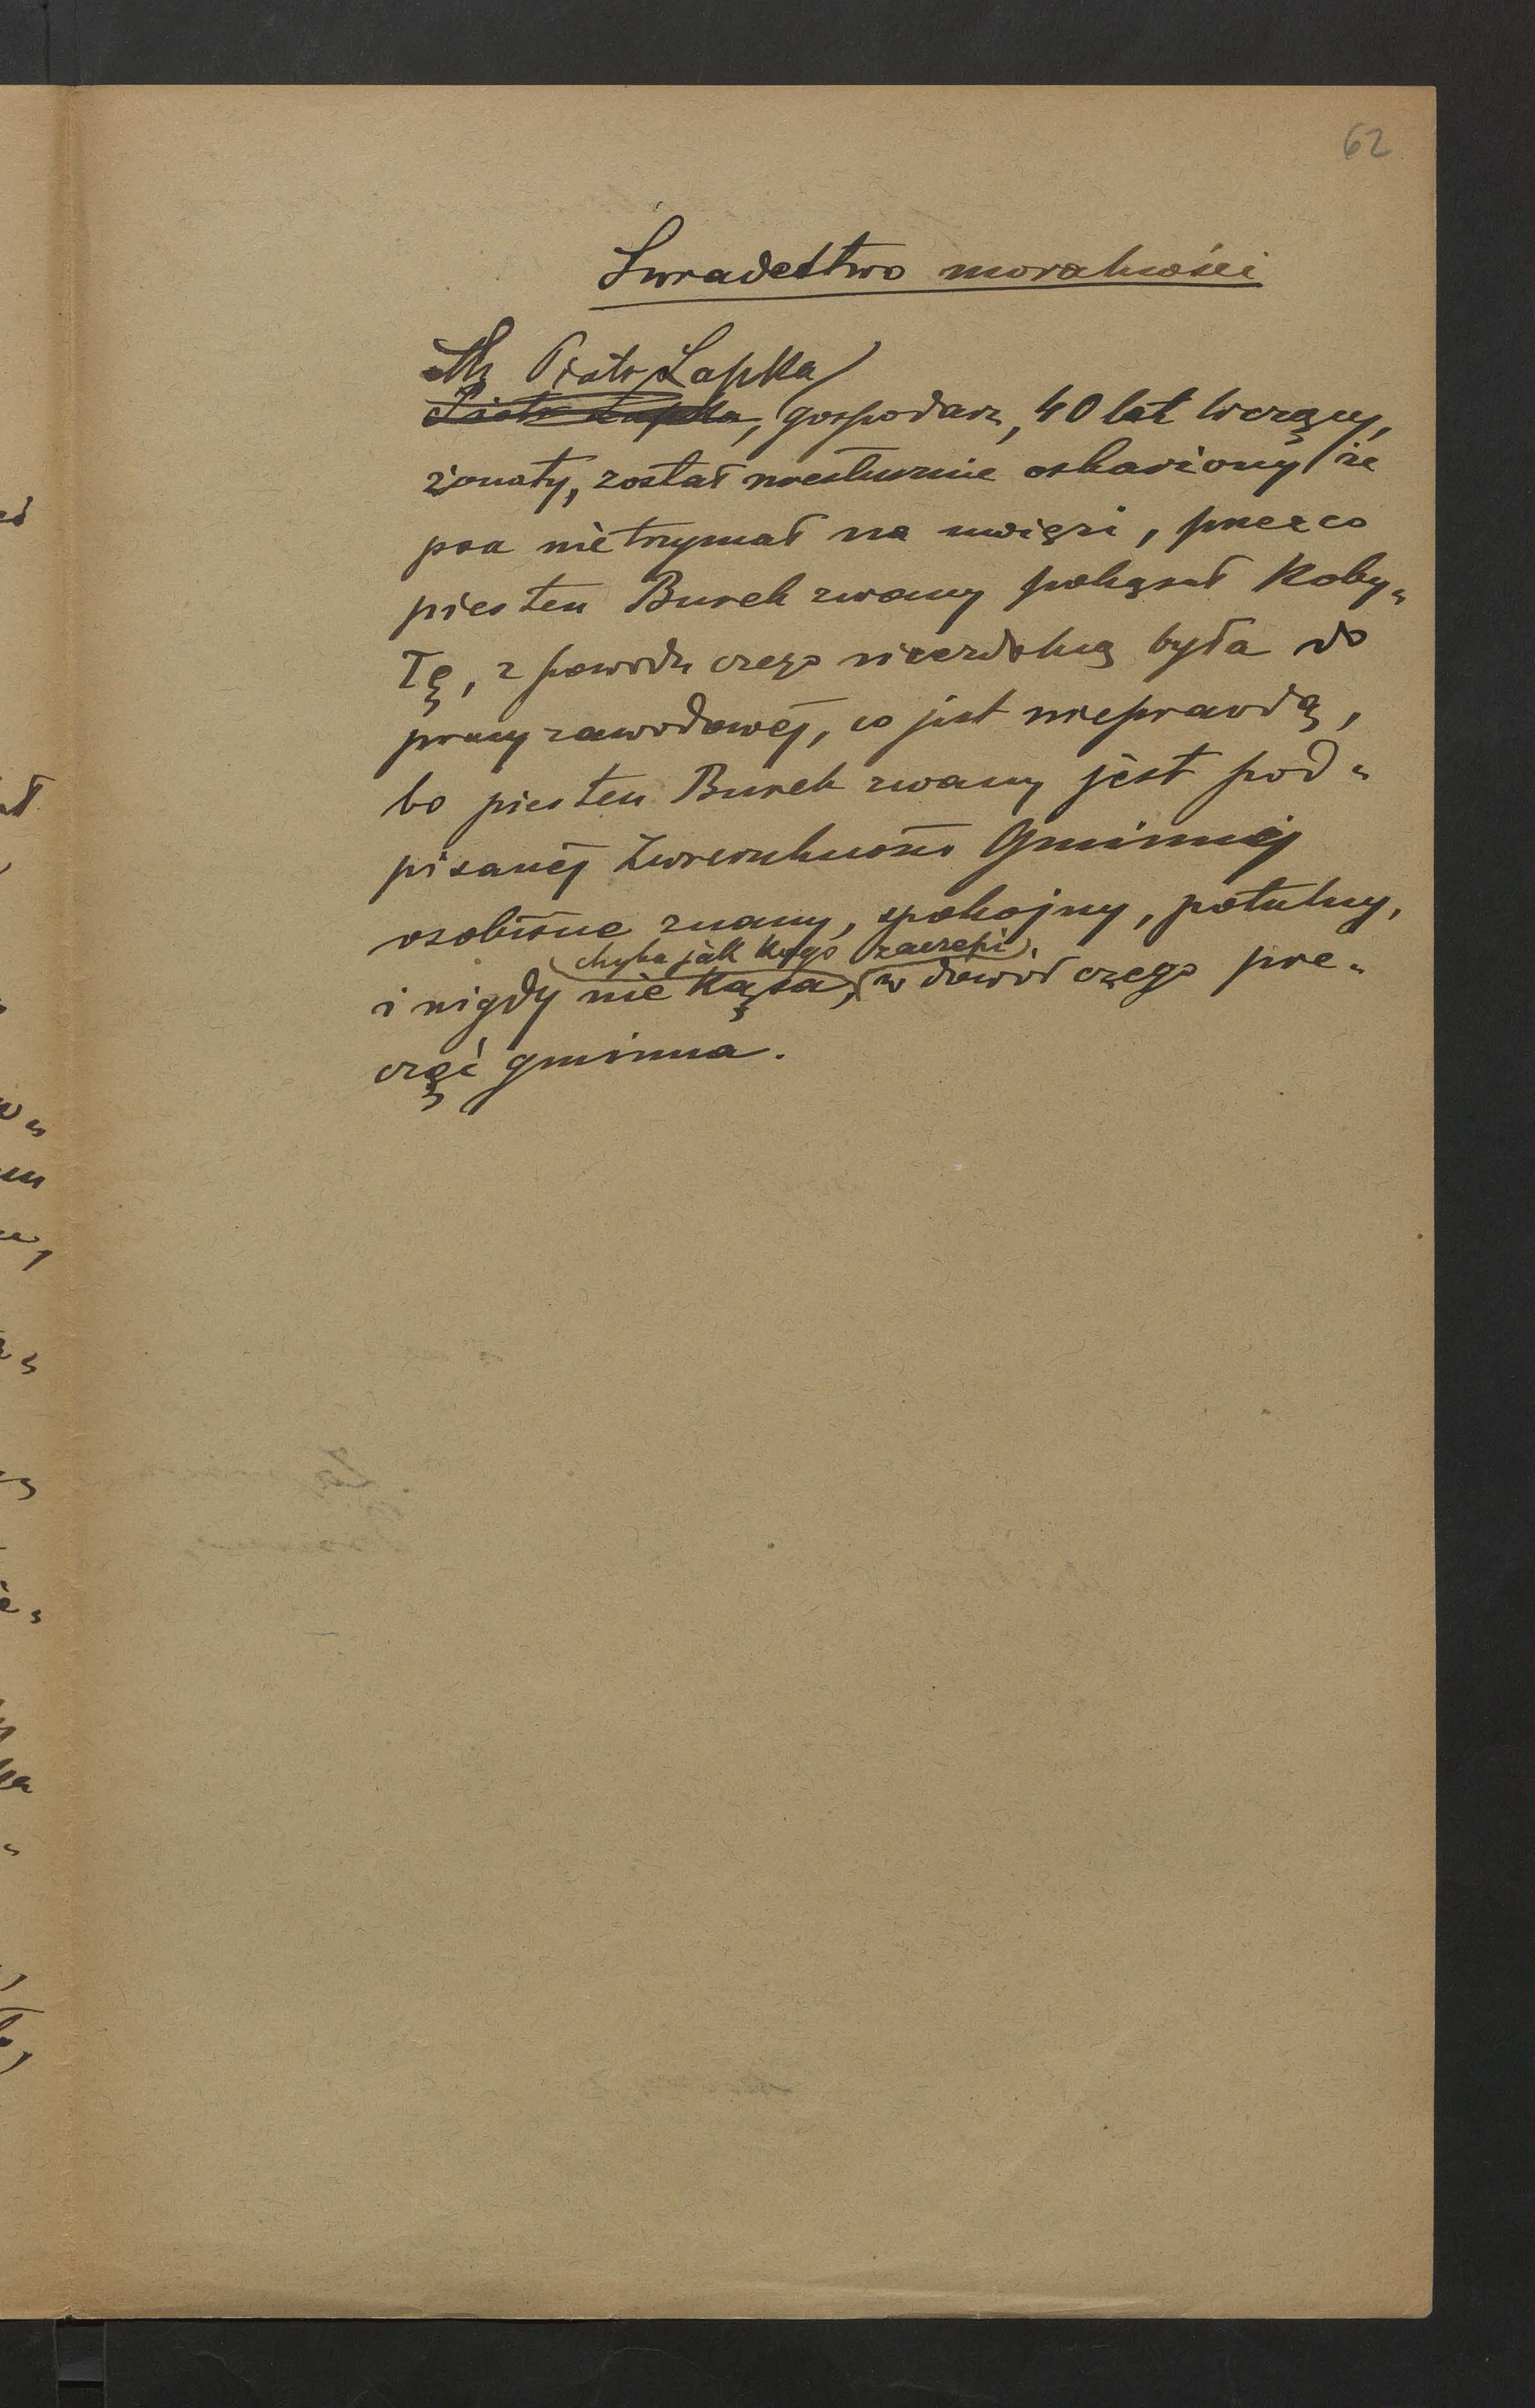 62
Swiadectwo moralności
Piotr Łapka
Piotr Łapka, gospodarz, 40 lat liczący,
żonaty, został niesłusznie oskarżony że
psa nie trzymał na uwięzi, przez co
pies ten Burek zwany pokąsał koby„
łę, z powodu czego niezdolną była do
pracy zawodowéj, co jest nieprawdą,
bo pies ten Burek zwany jest pod„
pisanéj Zwierzchności Gminnéj
osobiście znany, spokojny, potulny,
chyba jak kogo zaczepi,
i nigdy nie kąsa, w dowód czego pie„
częć gminna.